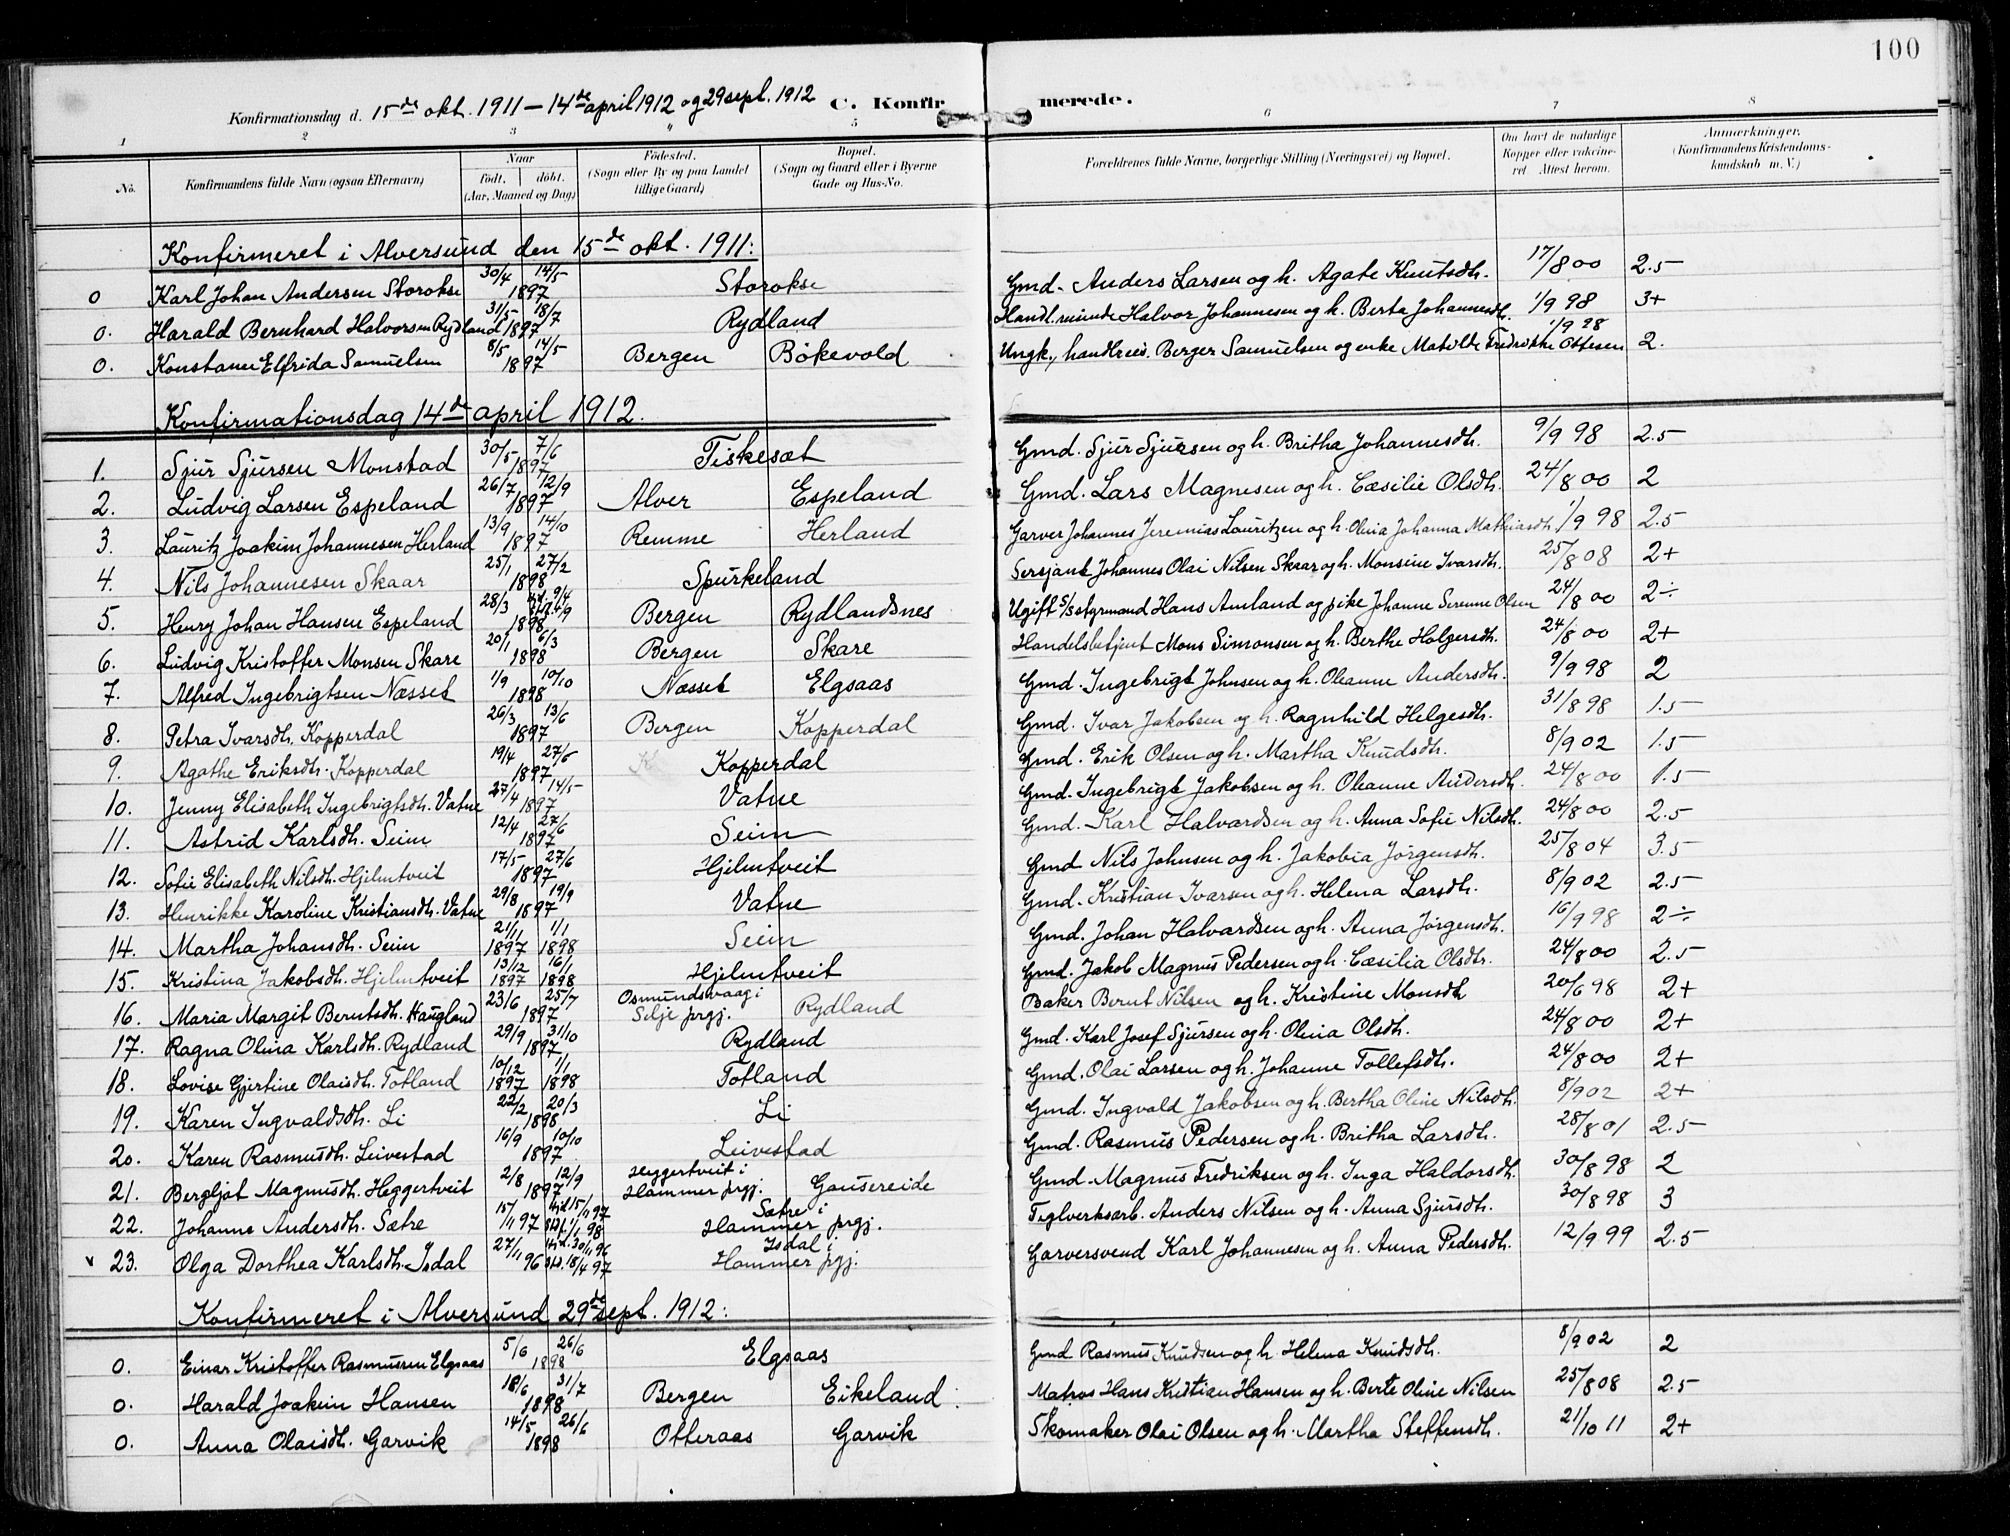 100
Konfirmationsdag d. 15de okt. 1911 – 14de april 1912 og 29 sept. 1912 C. Konfirmerede.
1 2 3 4 5 6 7 8
No. Konfirmandens fulde Navn (ogsaa Efternavn) Naar født. døbt. (Aar, Maaned og Dag) Fødested. (Sogn eller By og paa Landet tillige Gaard) Bopæl. (Sogn og Gaard eller i Byerne Gade og Hus-No. Forældrenes fulde Navne, borgerlige Stilling (Næringsvei) og Bopæl. Om havt de naturlige Kopper eller vakcineret Attest herom. Anmærkninger. (Konfirmandens Kristendomskundskab m. V.)
Konfirmeret i Alversund den 15de okt. 1911:
0 Karl Johan Andersen Storokse 30/4 14/5 1897 Storokse Gmd. Anders Larsen og h. Agate Knutsdh. 17/8 00 2.5
0. Harald Bernhard Halvorsen Rydland 31/5 18/7 1897 Rydland Handl.reisende Halvor Johannesen og h. Berta Johannesdh. 1/9 98 3+
0. Konstanse Elfrida Samuelsen 8/5 14/5 1897 Bergen Bökevold Ungk., handl.reis. Berger Samuelsen og enke Matilde Fredrikke Ottesen 1/9 98 2.
Konfirmationsdag 14de april 1912.
1. Sjur Sjursen Monstad 30/5 7/6 1897 Fiskesæt Gmd. Sjur Sjursen og h. Britha Johannesdh. 9/9 98 2.5
2. Ludvig Larsen Espeland 26/7 12/9 1897 Alver Espeland Gmd. Lars Magnesen og h. Cæsilie Olsdh. 24/8 00 2
3. Lauritz Joakim Johannesen Herland 13/9 14/10 1897 Remme Herland Garver Johannes Jeremias Lauritzen og h. Olina Johanna Mathiasdh. 1/9 98 2.5
4. Nils Johannesen Skaar 25/1 27/2 1898 Spurkeland Sersjant Johannes Olai Nilsen Skaar og h. Monsine Ivarsdh. 25/8 08 2+
5. Henry Johan Hansen Espeland 28/3 hjd. 9/4 1898 Bergen Rydlandsnes Ugift S/S styrmand Hans Amland og pike Johanne Serenne Olsen 24/8 00 2÷
6. Ludvig Kristoffer Monsen Skare 20/1 6/3 1898 Bergen Skare Handelsbetjent Mons Simonsen og h. Berthe Holgersdh. 24/8 00 2+
7. Alfred Ingebrigtsen Næsset 1/9 10/10 1898 Næsset Elgsaas Gmd. Ingebrigt Johnsen og h. Oleanne Andersdh. 9/9 98 2
8. Petra Ivarsdh. Kopperdal 26/3 13/6 1897 Bergen Kopperdal Gmd. Ivar Jakobsen og h. Ragnhild Helgesdh. 31/8 98 1.5
9. Agathe Eriksdh. Kopperdal 19/4 27/6 1897 Kopperdal Gmd. Erik Olsen og h. Martha Knudsdh. 8/9 02 1.5
10. Jenny Elisabeth Ingebrigtsdh. Vatne 27/4 14/5 1897 Vatne Gmd. Ingebrigt Jakobsen og h. Oleanne Andersdh. 24/8 00 1.5
11. Astrid Karlsdh. Seim 12/4 27/6 1897 Seim Gmd. Karl Halvardsen og h. Anna Sofie Nilsdh. 24/8 00 2.5
12. Sofie Elisabeth Nilsdh. Hjelmtveit 17/5 27/6 1897 Hjelmtveit Gmd Nils Johnsen og h. Jakobia Jörgensdh. 25/8 04 3.5
13. Henrikke Karoline Kristiansdh. Vatne 29/8 19/9 1897 Vatne Gmd. Kristian Ivarsen og h. Helena Larsdh. 8/9 02 2.5
14. Martha Johansdh. Seim 21/11 1897 1/1 1898 Seim Gmd. Johan Halvardsen og h. Anna Jörgensdh. 16/9 98 2÷
15. Kristina Jakobsdh. Hjelmtveit 13/12 1897 16/1 1898 Hjelmtveit Gmd. Jakob Magnus Pedersen og h. Cæsilia Olsdh. 24/8 00 2.5
16. Maria Margit Berntsdh. Haugland 23/6 25/7 1897 Osmundsvaag i Selje prgj. Rydland Baker Bernt Nilsen og h. Kristine Monsdh 20/6 98 2+
17. Ragna Olina Karlsdh. Rydland 29/9 31/10 1897 Rydland Gmd. Karl Josef Sjursen og h. Olina Olsdh. 24/8 00 2+
18. Lovise Gjertine Olaisdh. Totland 10/12 1897 1/1 1898 Totland Gmd. Olai Larsen og h. Johanne Tollefsdh. 24/8 00 2+
19. Karen Ingvaldsdh. Li 22/2 20/3 1898 Li Gmd. Ingvald Jakobsen og h. Bertha Oline Nilsdh. 8/9 02 2+
20. Karen Rasmusdh. Leivestad 16/9 10/10 1897. Leivestad Gmd. Rasmus Pedersen og h. Britha Larsdh. 28/8 01 2.5
21. Bergljot Magnusdh. Heggertveit 2/8 12/9 1897 Heggertveit i Hammer prgj. Gausereide Gmd. Magnus Fredriksen og h. Inga Haldorsdh. 30/8 98 2
22. Johanne Andersdh. Sætre 15/11 97 hjd 15/11 97 st.f. 1/1 98 Sætre i Hammer prgj. Teglverksarb. Anders Nilsen og h. Anna Sjursdh. 30/8 98 3
v 23. Olga Dorthea Karlsdh. Isdal 27/11 96 hjd. 30/11 96 st.f. 18/4 97 Isdal i Hammer prgj. Garversvend Karl Johannesen og h. Anna Pedersdh. 12/9 99 2.5
Konfirmeret i Alversund 29de sept. 1912:
0. Einar Kristoffer Rasmussen Elgsaas 5/6 26/6 1898 Elgsaas Gmd Rasmus Knudsen og h. Helena Knudsdh. 8/9 02 2
0. Harald Joakim Hansen 18/6 31/7 1898 Bergen Eikeland Matros Hans Kristian Hansen og h. Berte Oline Nilsen 25/8 08 2.5
0. Anna Olaisdh. Garvik 14/5 26/6 1898 Otteraas Garvik Skomaker Olai Olsen og h. Martha Steffensdh. 21/10 11 2+